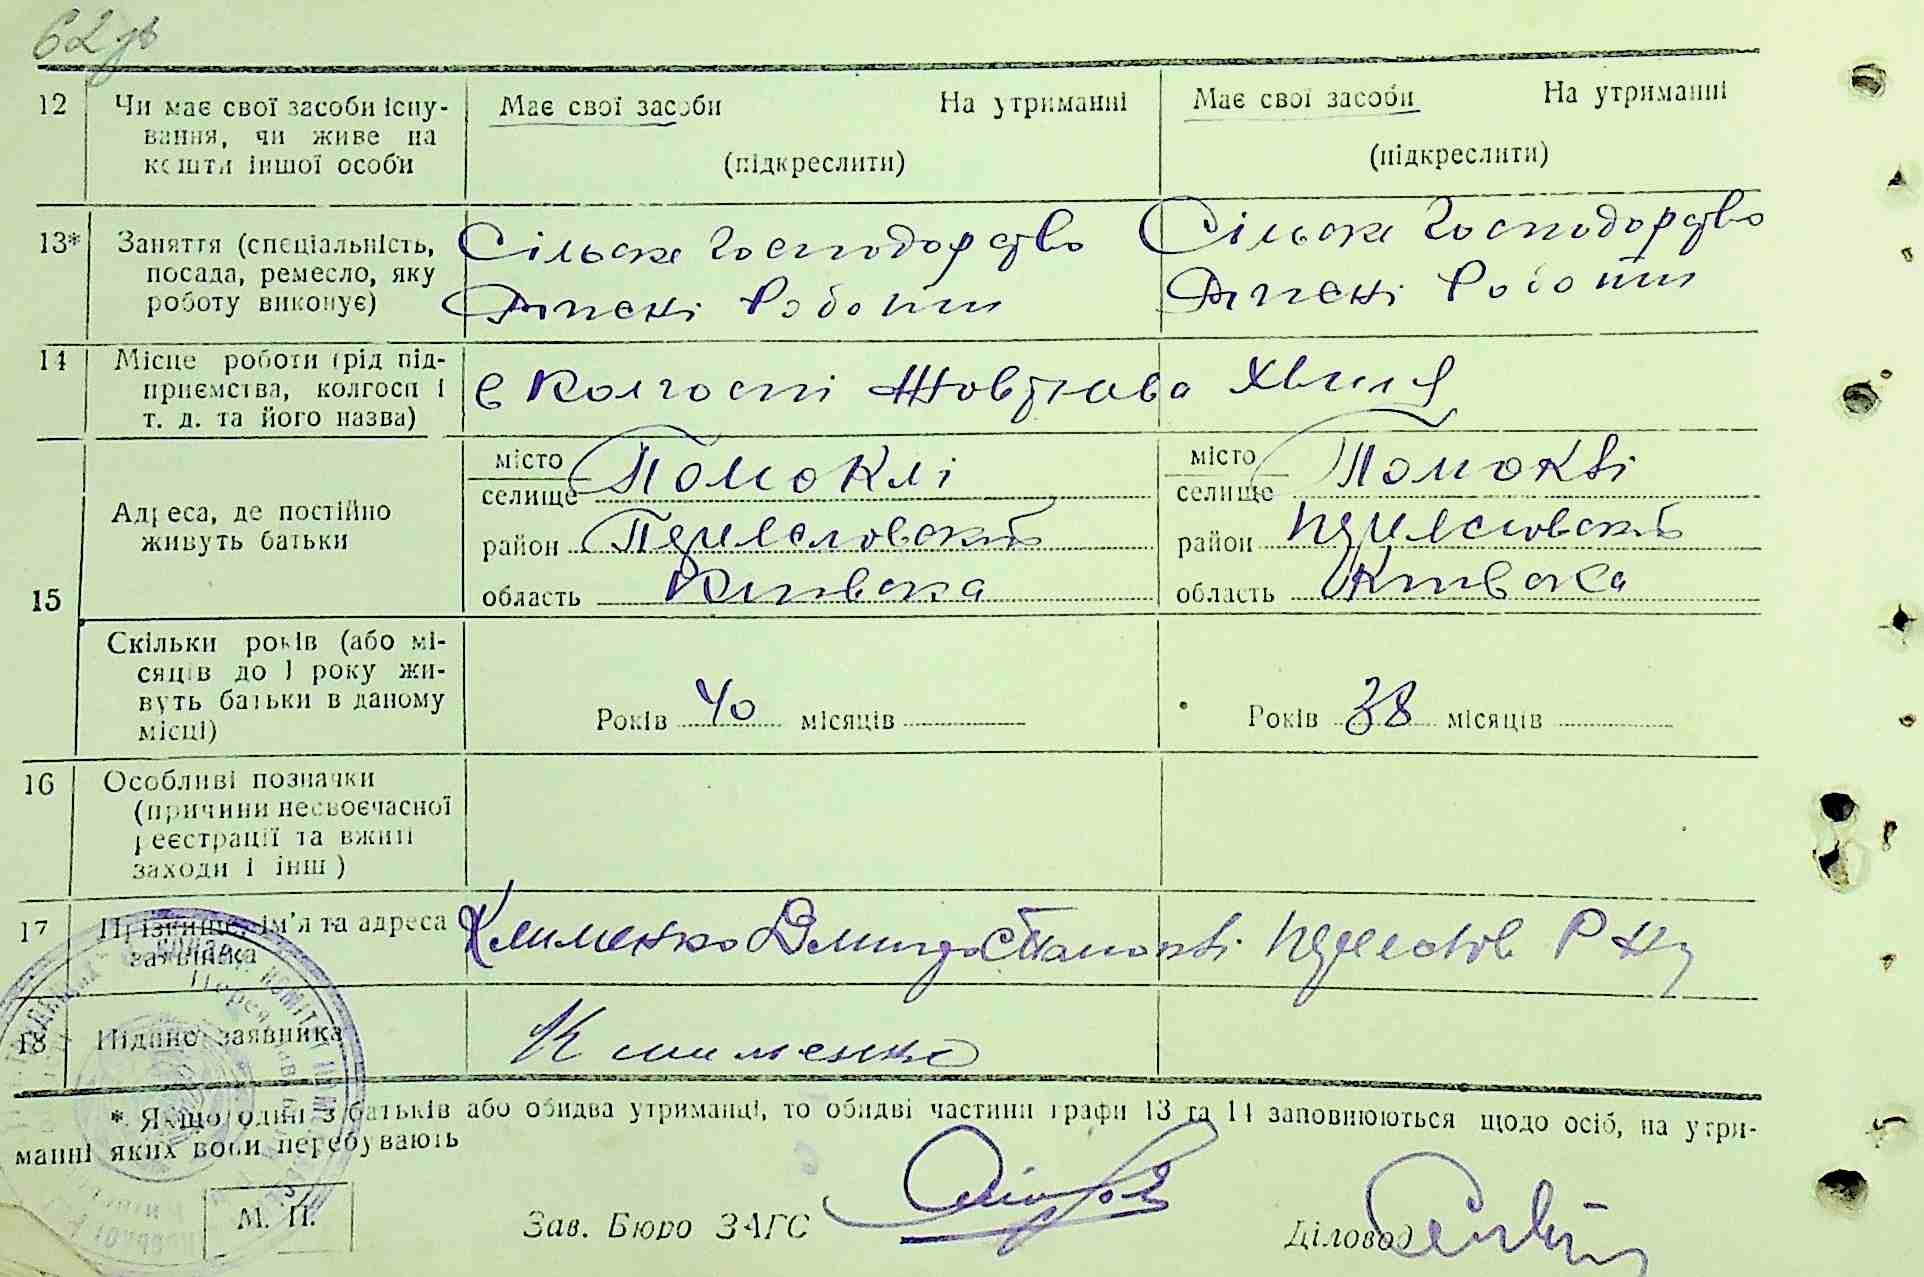 62 зв
12 Чи має свої засоби існу- Має свої засоби На утриманні Має свої засоби На утриманні
вання, чи живе на
кошти іншої особи (підкреслити) (підкреслити)
13* Заняття (спеціальність, Сільске Господорство Сільске Господорство
посада, ремесло, яку
роботу виконує) Роботи Роботи
14 Місце роботи (рід під-
приємства, колгосп і в Колгоспі Жовтнева Хвиля
т. д. та його назва)
місто Помоклі місто Помокві
селище селище
15 Адреса, де постійно
живуть батьки район район
область Киівска область Киівска
Скільки років (або мі-
сяців до 1 року жи-
вуть батьки в даному Років 40 місяців Років 38 місяців
місці)
16 Особливі позначки
(причини несвоєчасної
реєстрації та вжиті
заходи і інш)
17 Прізвище, ім'я та адреса Клименко
заявника
18 Підпис заявника Клименко
* Якщо один з батьків або обидва утриманці, то обидві частини графи 13 та 14 заповнюються щодо осіб, на утри-
манні яких вони перебувають
М. П. Зав. Бюро ЗАГС Діловод